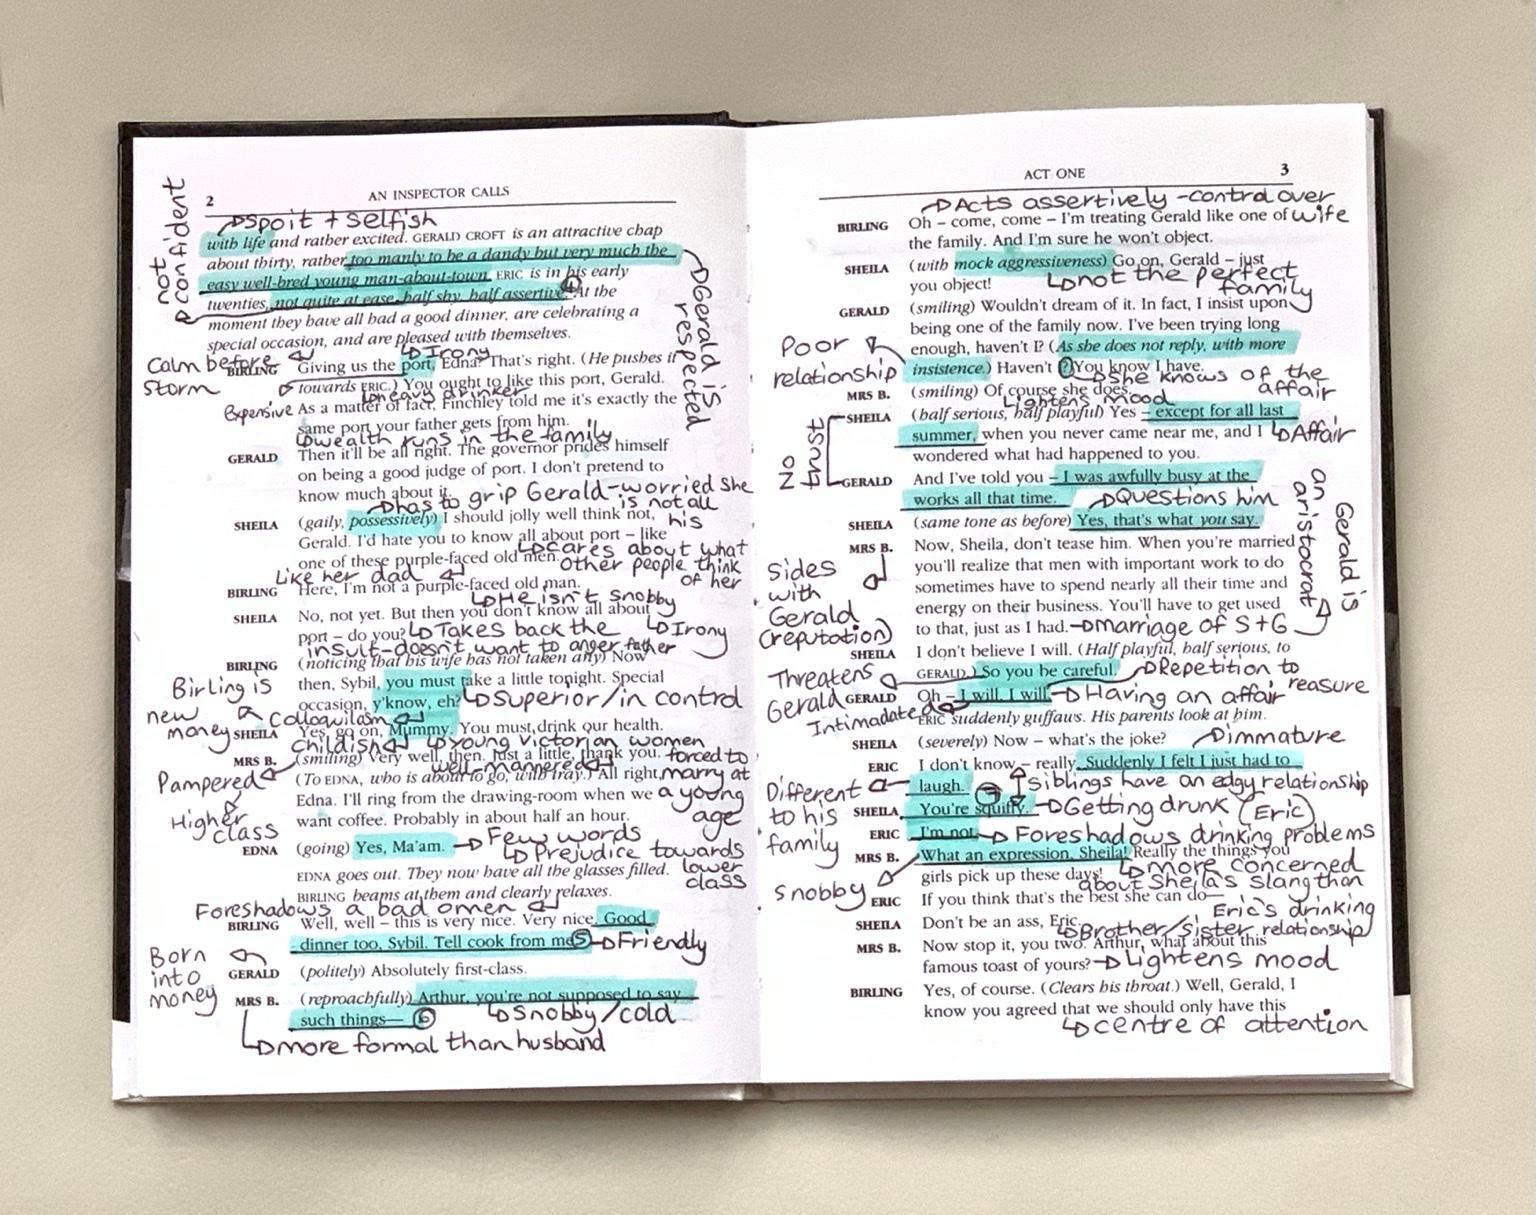 2
AN INSPECTOR CALLS
not confident
spoit + selfish
with life and rather excited. GERALD CROFT is an attractive chap
about thirty, rather too manly to be a dandy but very much the
easy well-bred young man-about-town. ERIC is in his early
twenties, not quite at ease, half shy, half assertive. 4 At the
moment they have all had a good dinner, are celebrating a
special occasion, and are pleased with themselves.
Gerald is respected
Calm before storm
Irony
BIRLING Giving us the port, Edna? That's right. (He pushes it
towards ERIC.) You ought to like this port, Gerald.
heavy drinker
Expensive
As a matter of fact, Finchley told me it's exactly the
same port your father gets from him.
wealth runs in the family
GERALD Then it'll be all right. The governor prides himself
on being a good judge of port. I don't pretend to
know much about it.
has to grip Gerald-worried she is not all his
SHEILA (gaily, possessively) I should jolly well think not,
Gerald. I'd hate you to know all about port – like
one of these purple-faced old men.
cares about what other people think of her
Like her dad
BIRLING Here, I'm not a purple-faced old man.
He isn't snobby
SHEILA No, not yet. But then you don't know all about
port – do you?
Takes back the insult-doesn't want to anger father
Irony
BIRLING (noticing that his wife has not taken any) Now
then, Sybil, you must take a little tonight. Special
occasion, y'know, eh?
Superior/in control
Birling is new money
Colloquilasm
SHEILA Yes, go on, Mummy. You must drink our health.
childish
young victorian women forced to marry at a young age
MRS B. (smiling) Very well, then. Just a little, thank you.
well mannered
Pampered
Higher class
(To EDNA, who is about to go, with tray.) All right,
Edna. I'll ring from the drawing-room when we
want coffee. Probably in about half an hour.
EDNA (going) Yes, Ma'am.
Few words
Prejudice towards lower class
EDNA goes out. They now have all the glasses filled.
BIRLING beams at them and clearly relaxes.
Foreshadows a bad omen
BIRLING Well, well – this is very nice. Very nice. Good
dinner too, Sybil. Tell cook from me. 5
Friendly
Born into money
GERALD (politely) Absolutely first-class.
MRS B. (reproachfully) Arthur, you're not supposed to say
such things— 6
Snobby/cold
more formal than husband
ACT ONE
3
Acts assertively -control over wife
BIRLING Oh – come, come – I'm treating Gerald like one of
the family. And I'm sure he won't object.
SHEILA (with mock aggressiveness) Go on, Gerald – just
you object!
not the perfect family
GERALD (smiling) Wouldn't dream of it. In fact, I insist upon
being one of the family now. I've been trying long
enough, haven't I? (As she does not reply, with more
insistence.) Haven't I? You know I have.
Poor relationship
she knows of the affair
MRS B. (smiling) Of course she does.
Lightens mood
SHEILA (half serious, half playful) Yes – except for all last
summer, when you never came near me, and I
wondered what had happened to you.
Affair
No trust
GERALD And I've told you – I was awfully busy at the
works all that time.
Questions him
SHEILA (same tone as before) Yes, that's what you say.
MRS B. Now, Sheila, don't tease him. When you're married
you'll realize that men with important work to do
sometimes have to spend nearly all their time and
energy on their business. You'll have to get used
to that, just as I had.
marriage of S+G
Gerald is an aristocrat
sides with Gerald (reputation)
SHEILA I don't believe I will. (Half playful, half serious, to
GERALD.) So you be careful.
Threatens Gerald
Repetition to reasure
GERALD Oh – I will, I will.
Having an affair
Intimadated
ERIC suddenly guffaws. His parents look at him.
SHEILA (severely) Now – what's the joke?
immature
ERIC I don't know – really. Suddenly I felt I just had to
laugh.
Siblings have an edgy relationship
Different to his family
SHEILA You're squiffy.
Getting drunk (Eric)
ERIC I'm not.
Foreshadows drinking problems
MRS B. What an expression, Sheila! Really the things you
girls pick up these days!
more concerned about Sheila's slang than Eric's drinking
snobby
ERIC If you think that's the best she can do—
SHEILA Don't be an ass, Eric.
Brother/sister relationship
MRS B. Now stop it, you two. Arthur, what about this
famous toast of yours?
Lightens mood
BIRLING Yes, of course. (Clears his throat.) Well, Gerald, I
know you agreed that we should only have this
centre of attention